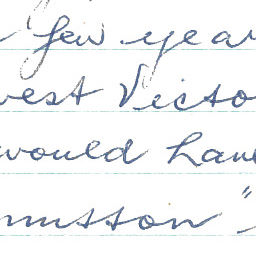 few year
west Victo
would have
mission"